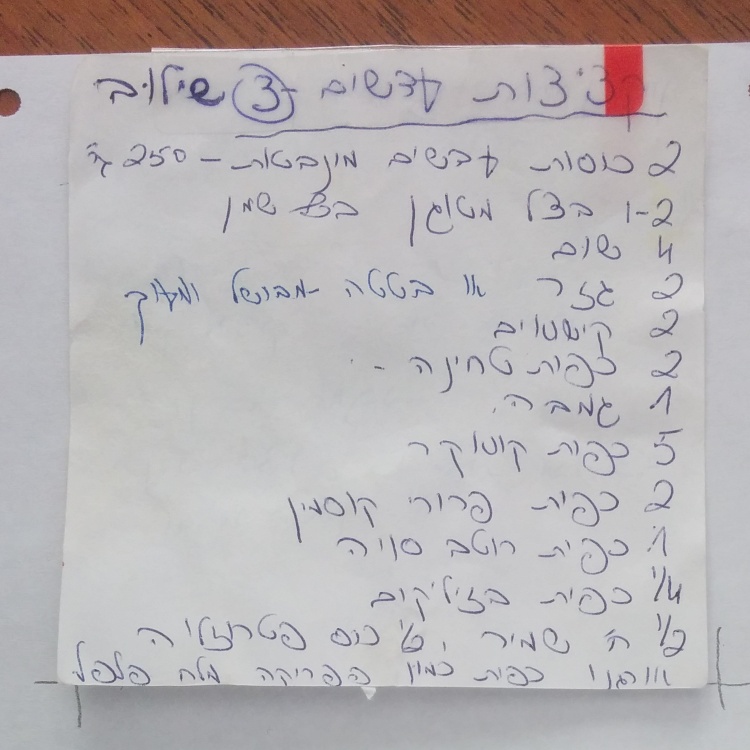 קציצות עדשים 3 שילוב
2 כוסות עדשים מונבטות - 250 ג'
1-2 בצל מטוגן בשמן
4 שום
2 גזר או בטטה - מבושל ומעוך
2 קישואים
2 כפית טחינה -
1 גמבה
3 כפית קווקר
2 כפית פרורי קוסמין
1 כפית רוטב סויה
1/4 כפית בזיליקום
1/2 ח' שמיר, 1/2 כוס פטרוזליה
אורגנו כפית כמון פפריקה מלח פלפל